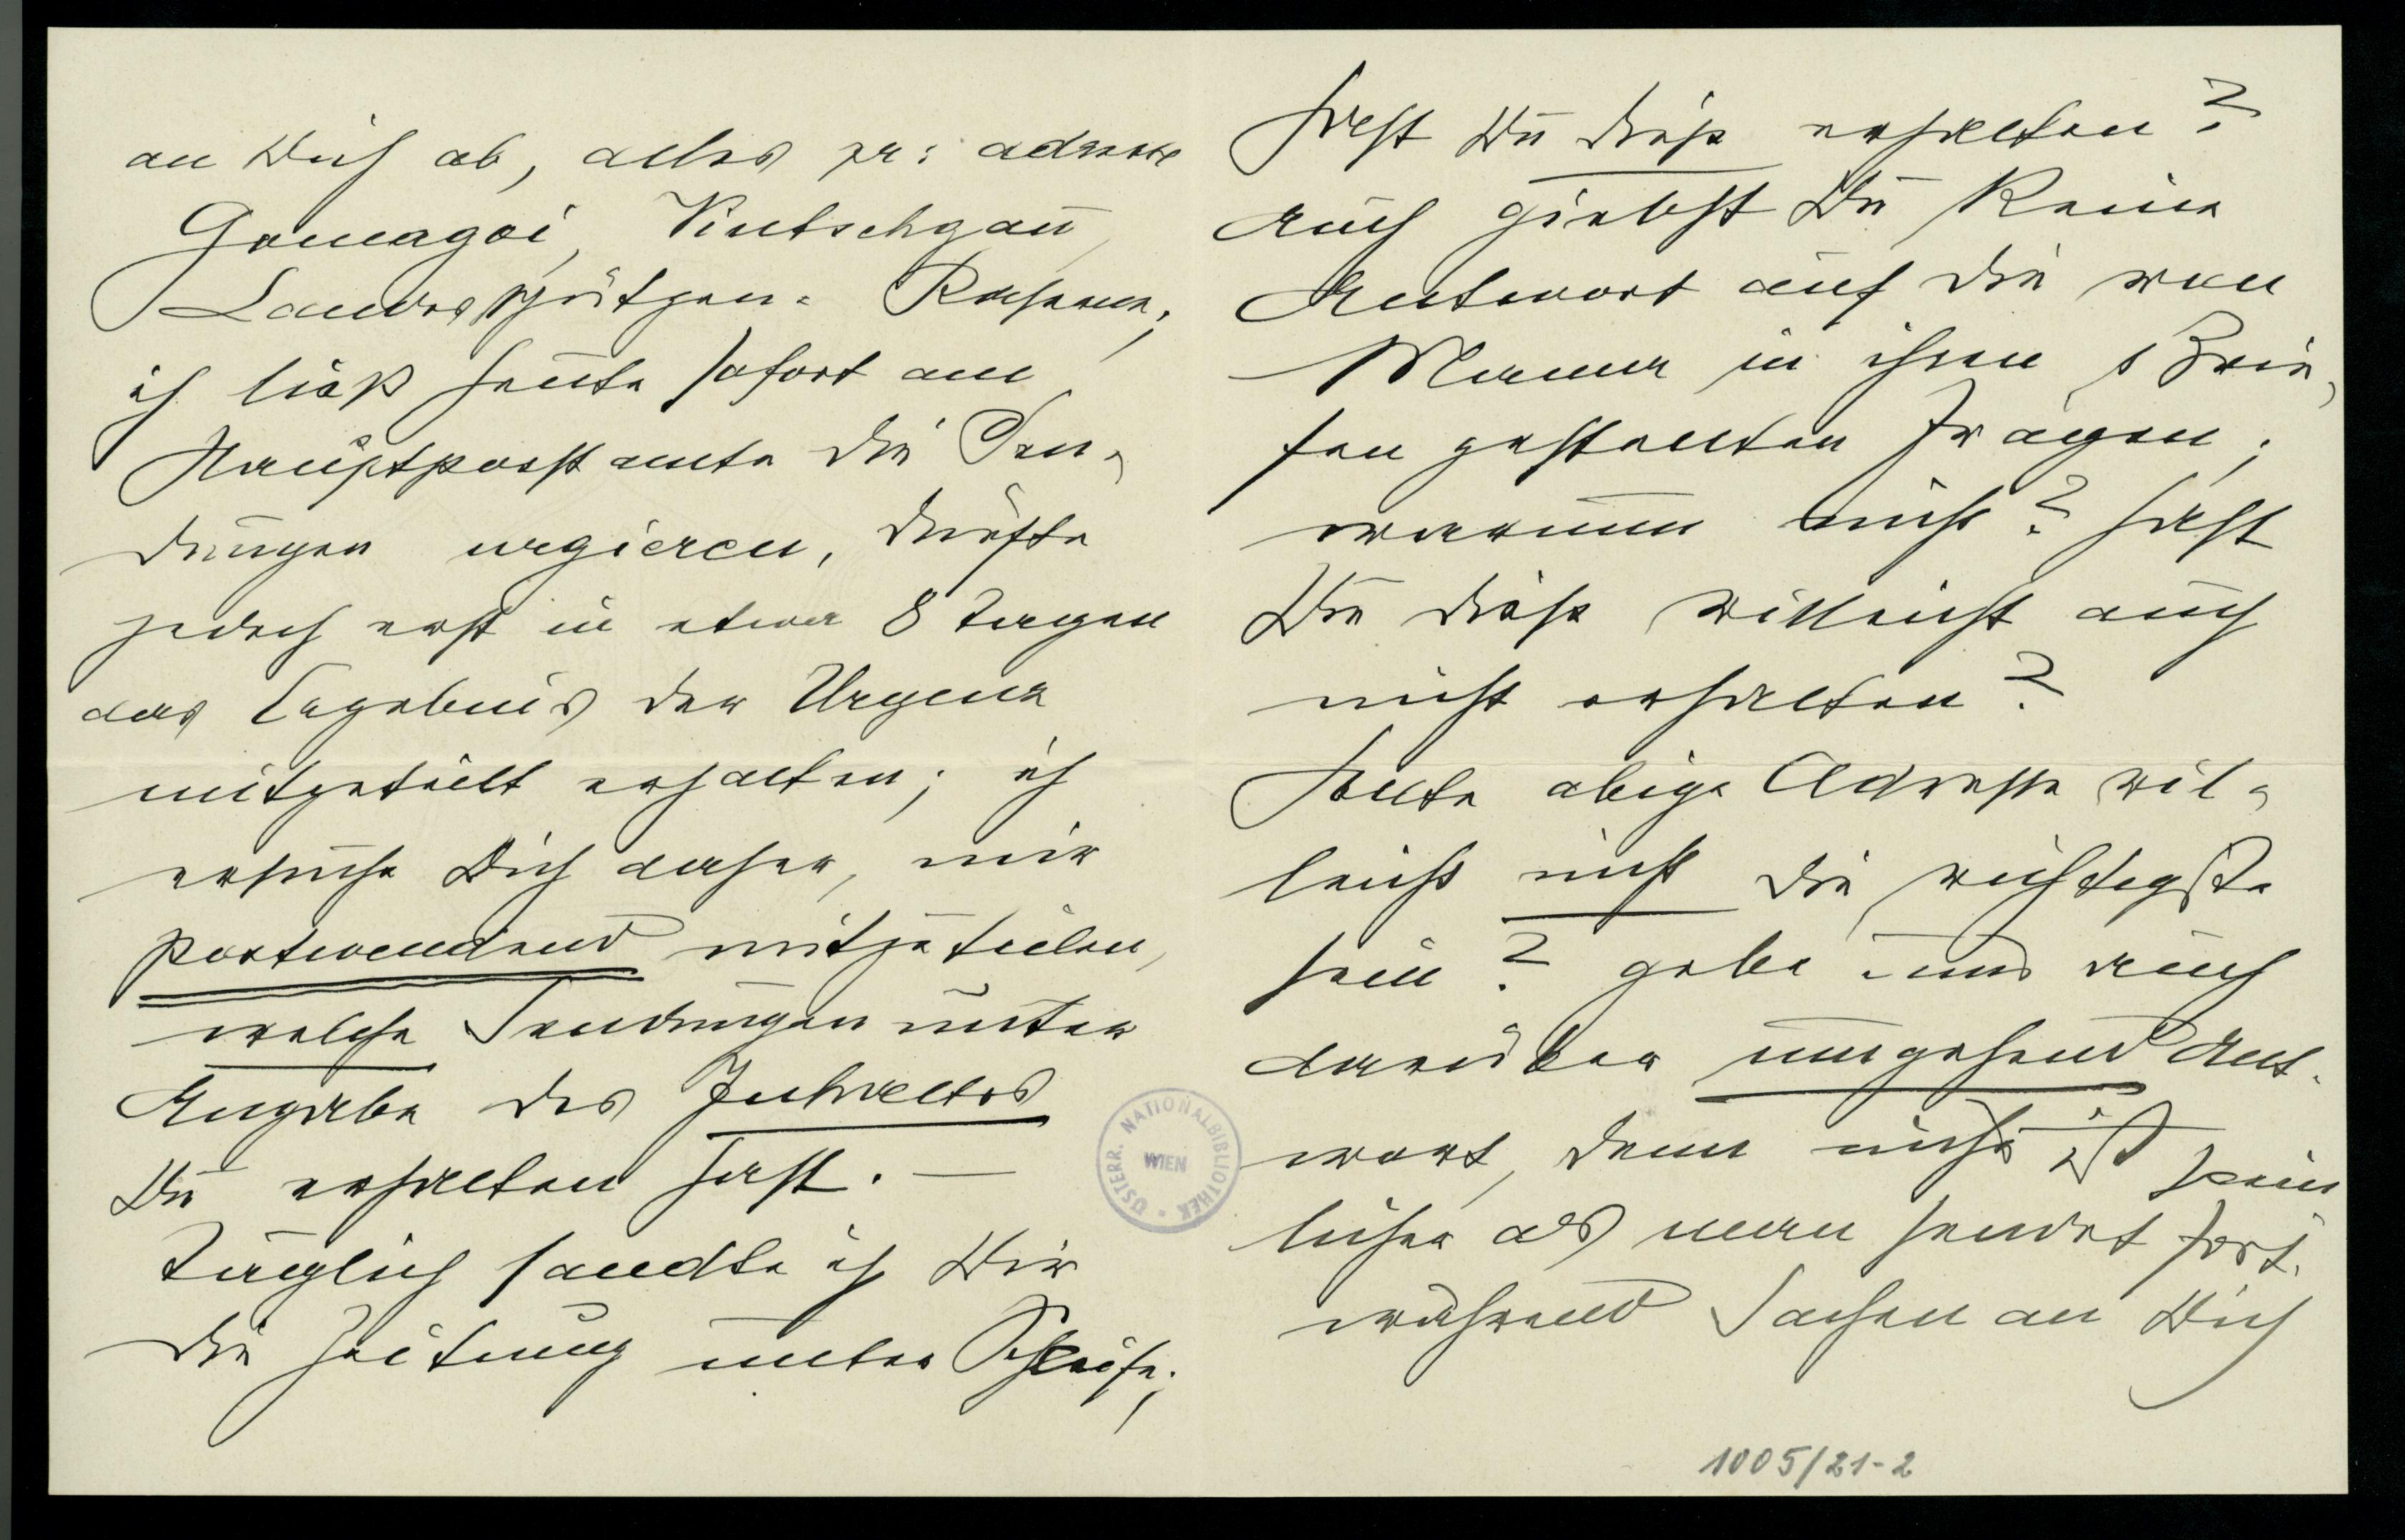 an Dich ab, alles pr: adresse
Gomagoi, Vintschgau,
Landesschützen-Kaserne;
ich ließ heute sofort am
Hauptpostamte die Sen-
dungen urgieren, dürfte
jedoch erst in etwa 8 Tagen
das Ergebnis der Urgenz
mitgeteilt erhalten; ich
ersuche Dich daher, mir
postwendend mitzuteilen,
welche Sendungen unter
Angabe des Inhaltes
Du erhalten hast. —
Täglich sandte ich Dir
die Zeitung unter Schleife;
hast Du diese erhalten?
Auch giebst Du keine
Antwort auf die von
Mama in ihren Brie-
fen gestellten Fragen;
warum nicht? hast
Du diese villeicht auch
nicht erhalten?
Sollte obige Adresse vil-
leicht nicht die richtigste
sein? gebe uns auch
darüber umgehend Ant-
wort, denn nichts ist pein
licher als man sendet fort-
während Sachen an Dich
ÖSTERR. NATIONALBIBLIOTHEK
WIEN
1005/21-2